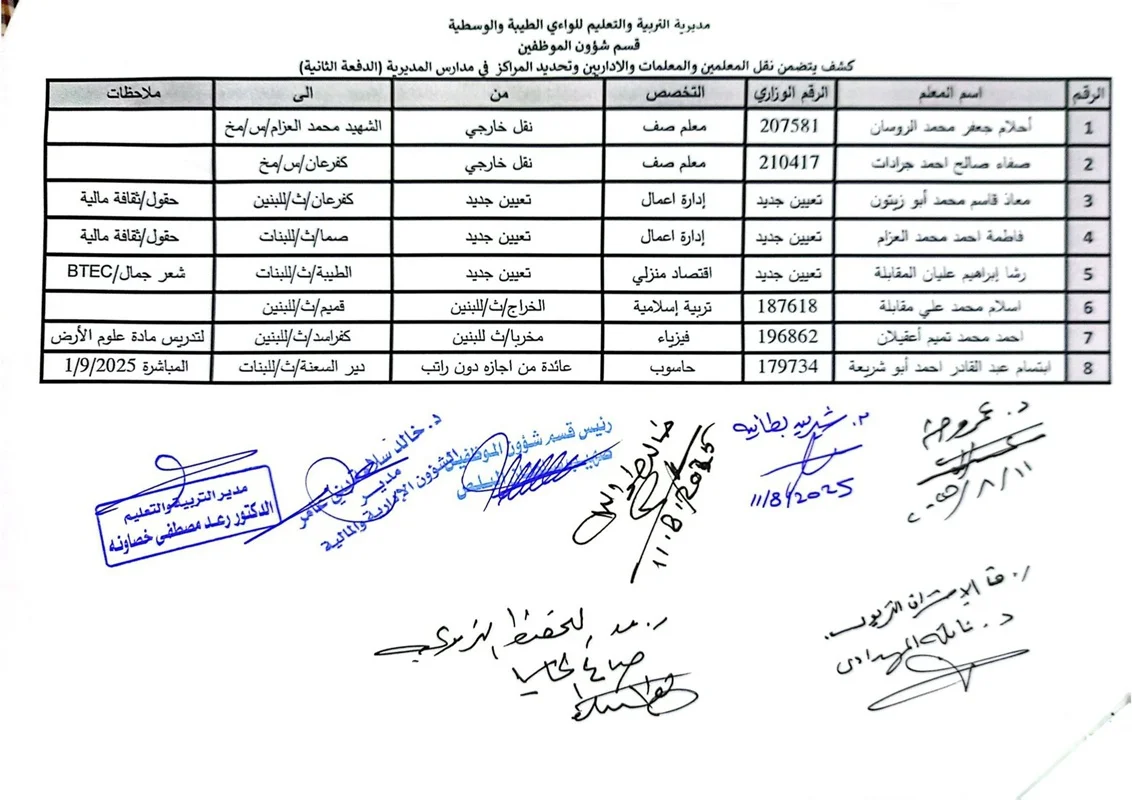 مديرية التربية والتعليم للواءي الطيبة والوسطية
قسم شؤون الموظفين
كشف يتضمن نقل المعلمين والمعلمات والاداريين وتحديد المراكز في مدارس المديرية (الدفعة الثانية)
الرقم اسم المعلم الرقم الوزاري التخصص من الى ملاحظات
1 أحلام جعفر محمد الروسان 207581 معلم صف نقل خارجي الشهيد محمد العزام/س/مخ
2 صفاء صالح احمد جرادات 210417 معلم صف نقل خارجي كفرعان/س/مخ
3 معاذ قاسم محمد أبو زيتون تعيين جديد إدارة اعمال تعيين جديد كفرعان/ث/للبنين حقول/ثقافة مالية
4 فاطمة احمد محمد العزام تعيين جديد إدارة اعمال تعيين جديد صما/ث/للبنات حقول/ثقافة مالية
5 رشا إبراهيم عليان المقابلة تعيين جديد اقتصاد منزلي تعيين جديد الطيبة/ث/للبنات شعر جمال/BTEC
6 اسلام محمد علي مقابلة 187618 تربية إسلامية الخراج/ث/للبنين قميم/ث/للبنين
7 احمد محمد تميم أعقيلان 196862 فيزياء مخربا/ث للبنين كفراسد/ث/للبنين لتدريس مادة علوم الأرض
8 ابتسام عبد القادر احمد أبو شريعة 179734 حاسوب عائدة من اجازه دون راتب دير السعنة/ث/للبنات المباشرة 1/9/2025
د. عمر
م. شريد بطاينه
11/8/2025
11.8.2025
رئيس قسم شؤون الموظفين
د. خالد
مدير
الشؤون الإدارية والمالية
مدير التربية والتعليم
الدكتور رعد مصطفى خصاونه
الإشراف التربوي